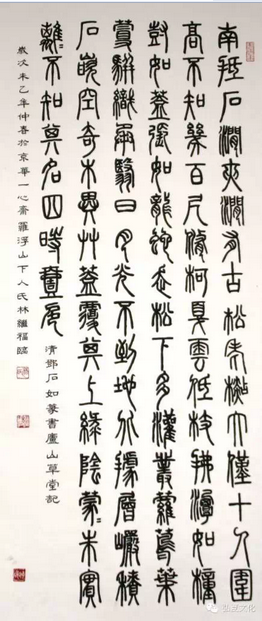 南抵石澗夾澗有古松老杉大僅十人圍
高不知幾百尺修柯戛雲低枝拂潭如幢
尌如蓋張如龍蛇走松下多灌叢蘿蔦葉
蔓駢織承翳日月光不到地北據層巘積
石嵌空奇木異艸蓋覆其上綠陰蒙=朱實
離=不知其名四時壹色
清鄧石如篆書廬山草堂記
歲次未乙年仲春於京華一心齋羅浮山下人氏林繼福臨
弘艺文化